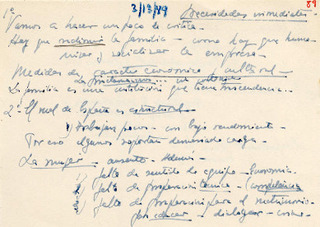 1º 3/13/49 Necesidades inmediatas 89
Vamos a hacer un poco de
Hay que redimir la familia – como hay que huma
nizar y socializar la empresa
Medidas de caracter economico cultural –
La familia es una institución que tiene trascendencia...
2º El mal de España es estructural
1) Trabajan pocos – con bajo rendimiento –
Por eso algunos soportan demasiada carga –
La mujer – ausente –
falta de sentido de equipo – Economia –
falta de preparación técnica – Competencia
falta de preparación para el matrimonio –
para educar – dialogar –